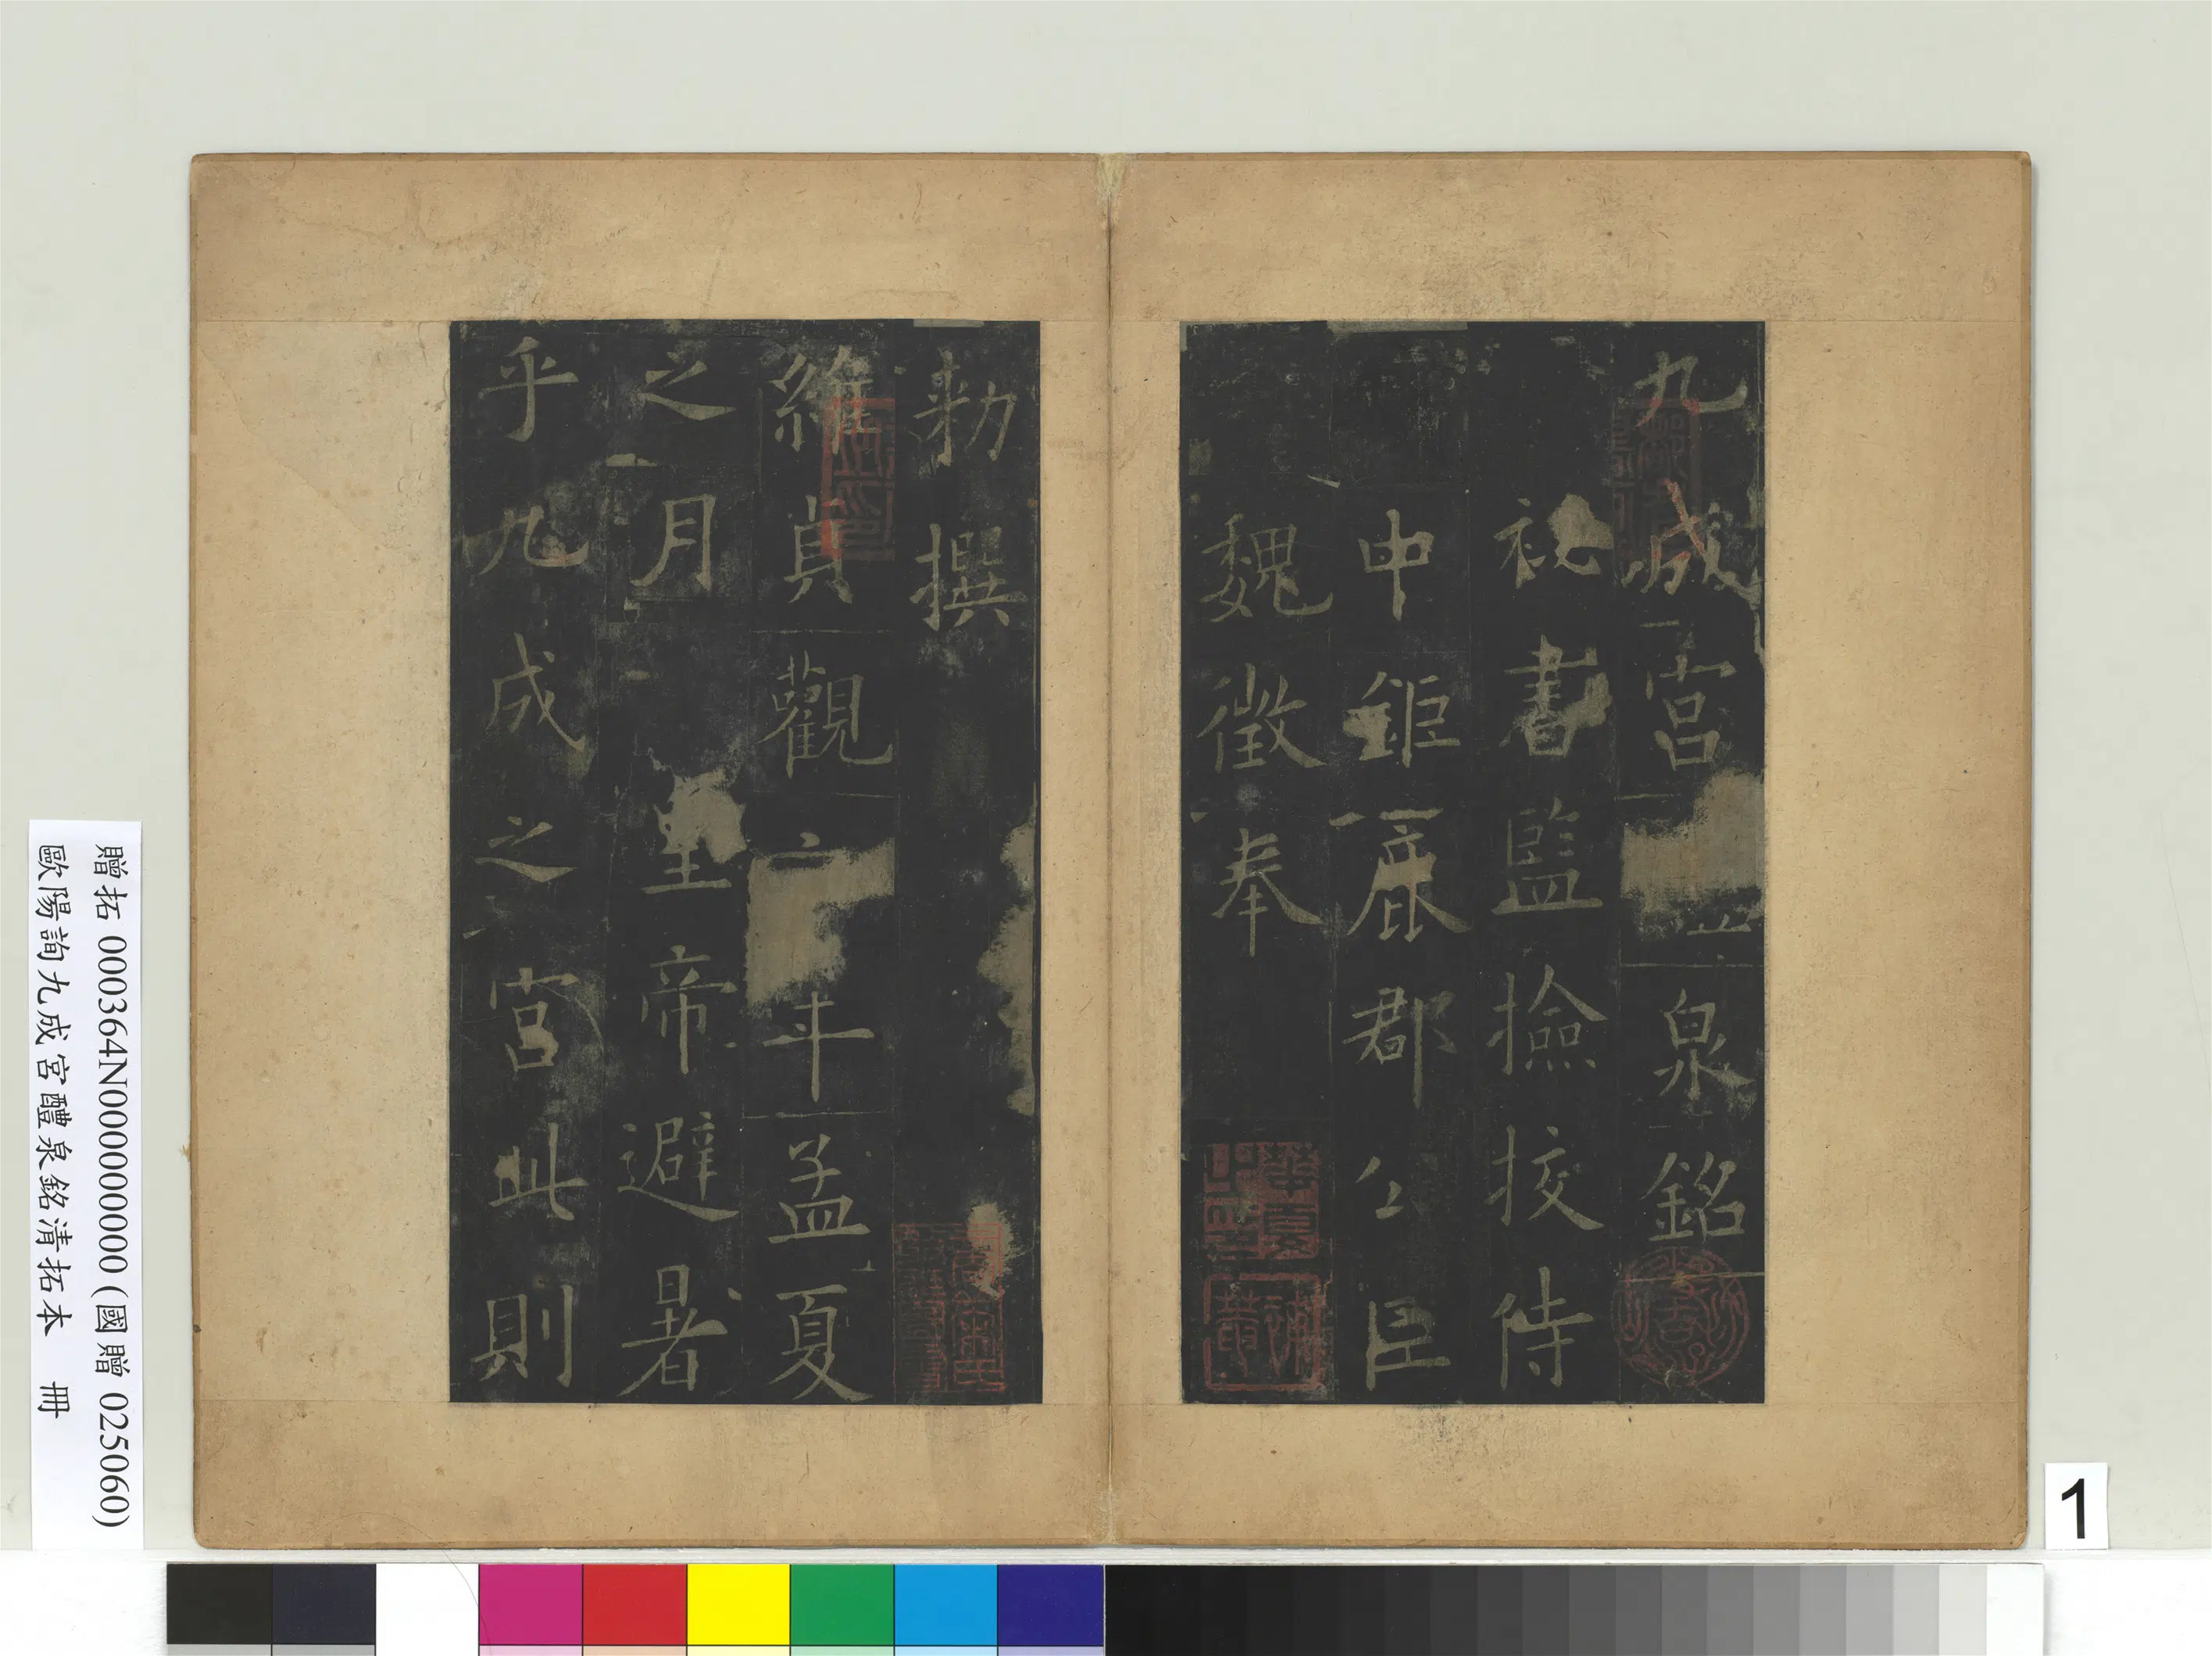 九成宮泉銘
祕書監撿挍侍
中鉅鹿郡公臣
魏徵奉
勑撰
維貞觀年孟夏
之月
皇帝避暑
乎九成之宮此則
贈拓 000364N000000000 (國贈 025060)
歐陽詢九成宮醴泉銘清拓本 冊
1